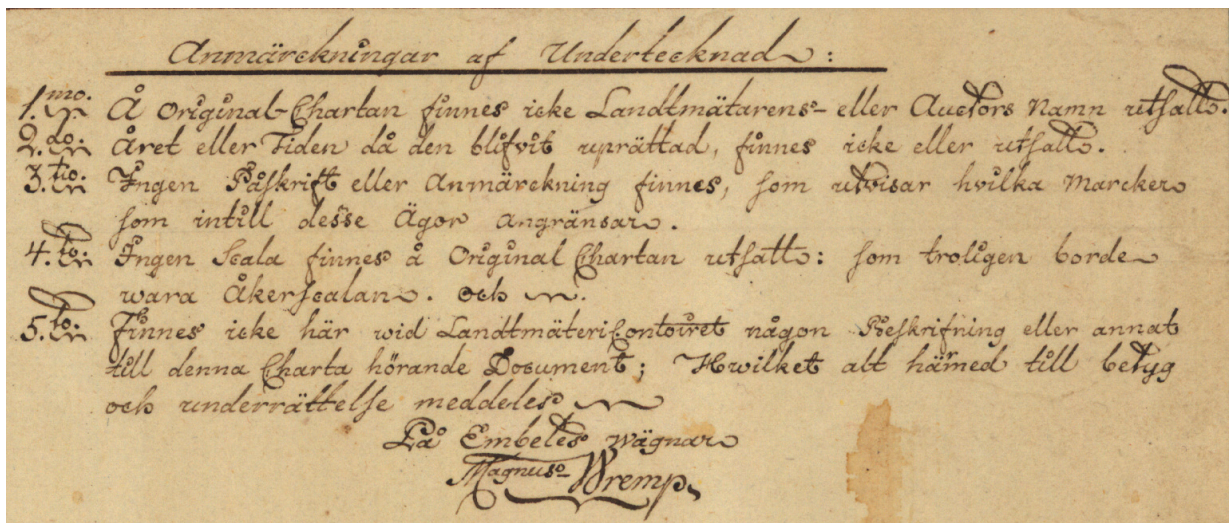 Anmärckningar af Undertecknad:
1.mo. Å Original-Chartan finnes icke Landtmätarens- eller Auctors Namn utsatt.
2.do. Året eller Tiden då den blifvit uprättad, finnes icke eller utsatt.
3.tio. Ingen Påskrift eller Anmärckning finnes, som utvisar hvilka Marcker
som intill desse Ägor angränsar.
4.to. Ingen Scala finnes å Original Chartan utsatt: som troligen borde
wara Åkerscalan. och
5.to. Finnes icke här wid LandtmäteriContoiret någon Beskrifning eller annat
till denna Charta hörande Document; Hwilket alt härmed till betyg
och underrättelse meddeles
På Embetes wägnar
Magnus Wremp